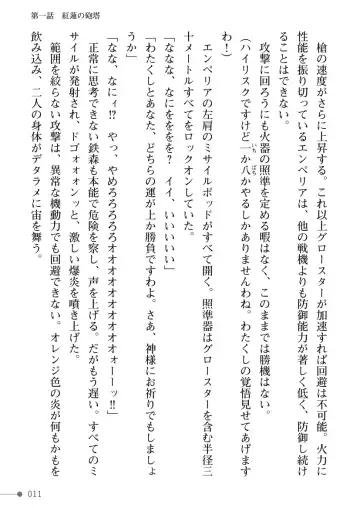 第一話　紅蓮の砲塔
　槍の速度がさらに上昇する。これ以上グロースターが加速すれば回避は不可能。火力に
性能を振り切っているエンペリアは、他の戦機よりも防御能力が著しく低く、防御し続け
ることはできない。
　攻撃に回ろうにも火器の照準を定める暇はなく、このままでは勝機はない。
（ハイリスクですけど一か八かやるしかありませんわね。わたくしの覚悟見せてあげます
わ！）
　エンペリアの左肩のミサイルポッドがすべて開く。照準器はグロースターを含む半径三
十メートルすべてをロックオンしていた。
「ななな、なにをををを？　イイ、いいいいい」
「わたくしとあなた、どちらの運が上か勝負ですわよ。さあ、神様にお祈りでもしましょ
うか」
「なな、なにィ!?　やっ、やめろろろろろオオオオオオオオオオオォーーッ!!」
　正常に思考できない鉄森も本能で危険を察し、声を上げる。だがもう遅い。すべてのミ
サイルが発射され、ドゴォォォンッと、激しい爆炎が噴き上った。
　範囲を絞らない攻撃は、異常な機動力でも回避できない。オレンジ色の炎が何もかもを
飲み込み、二人の身体がデタラメに宙を舞う。
いち　ばち
011